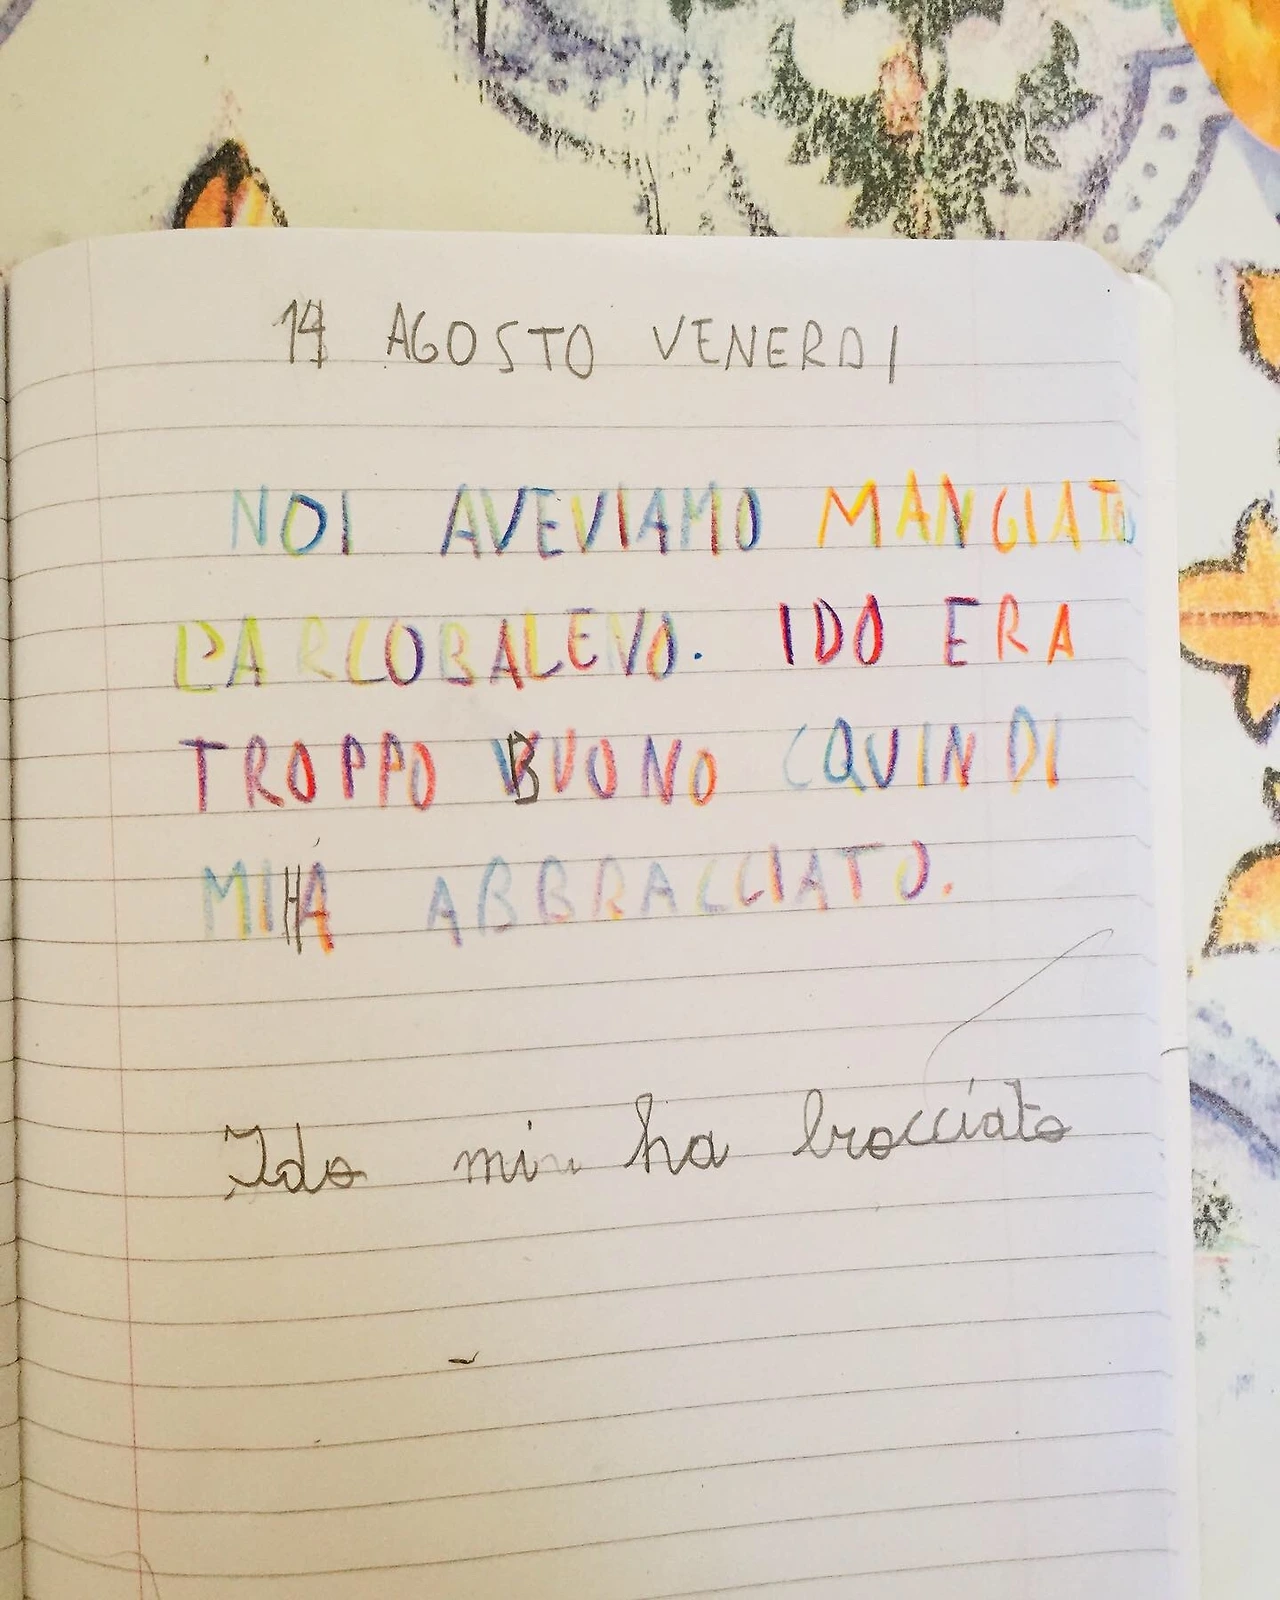 14 AGOSTO VENERDI
NOI AVEVIAMO MANGIATO
L'ARCOBALENO. IDO ERA
TROPPO BUONO CQUINDI
MI HA ABBRACCIATO.
Ido mi ha bracciato